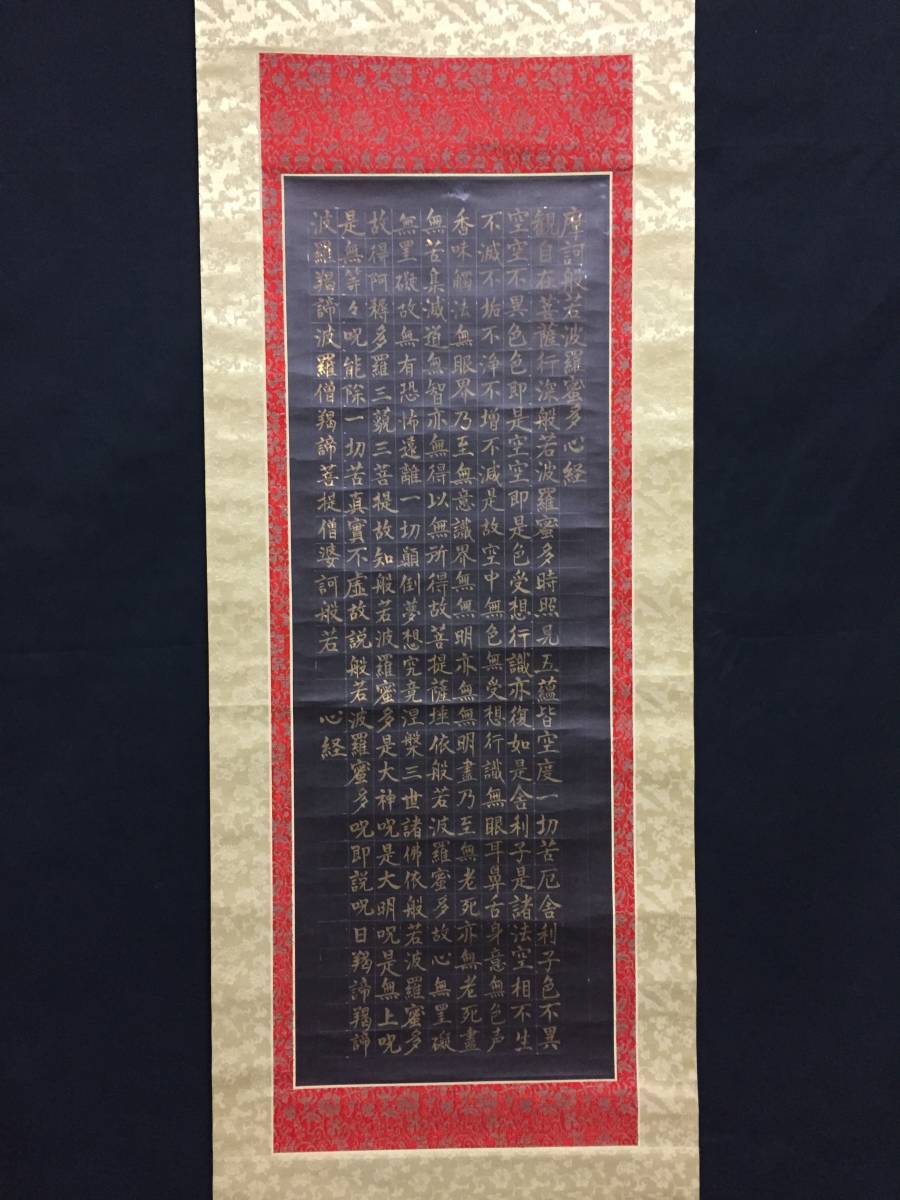 摩訶般若波羅蜜多心経
観自在菩薩行深般若波羅蜜多時照見五蘊皆空度一切苦厄舎利子色不異
空空不異色色即是空空即是色受想行識亦復如是舎利子是諸法空相不生
不滅不垢不浄不増不減是故空中無色無受想行識無眼耳鼻舌身意無色声
香味觸法無眼界乃至無意識界無無明亦無無明盡乃至無老死亦無老死盡
無苦集滅道無智亦無得以無所得故菩提薩埵依般若波羅蜜多故心無罣礙
無罣礙故無有恐怖遠離一切顛倒夢想究竟涅槃三世諸佛依般若波羅蜜多
故得阿耨多羅三藐三菩提故知般若波羅蜜多是大神呪是大明呪是無上呪
是無等々呪能除一切苦真實不虚故説般若波羅蜜多呪即説呪曰羯諦羯諦
波羅羯諦波羅僧羯諦菩提僧婆訶般若 心経